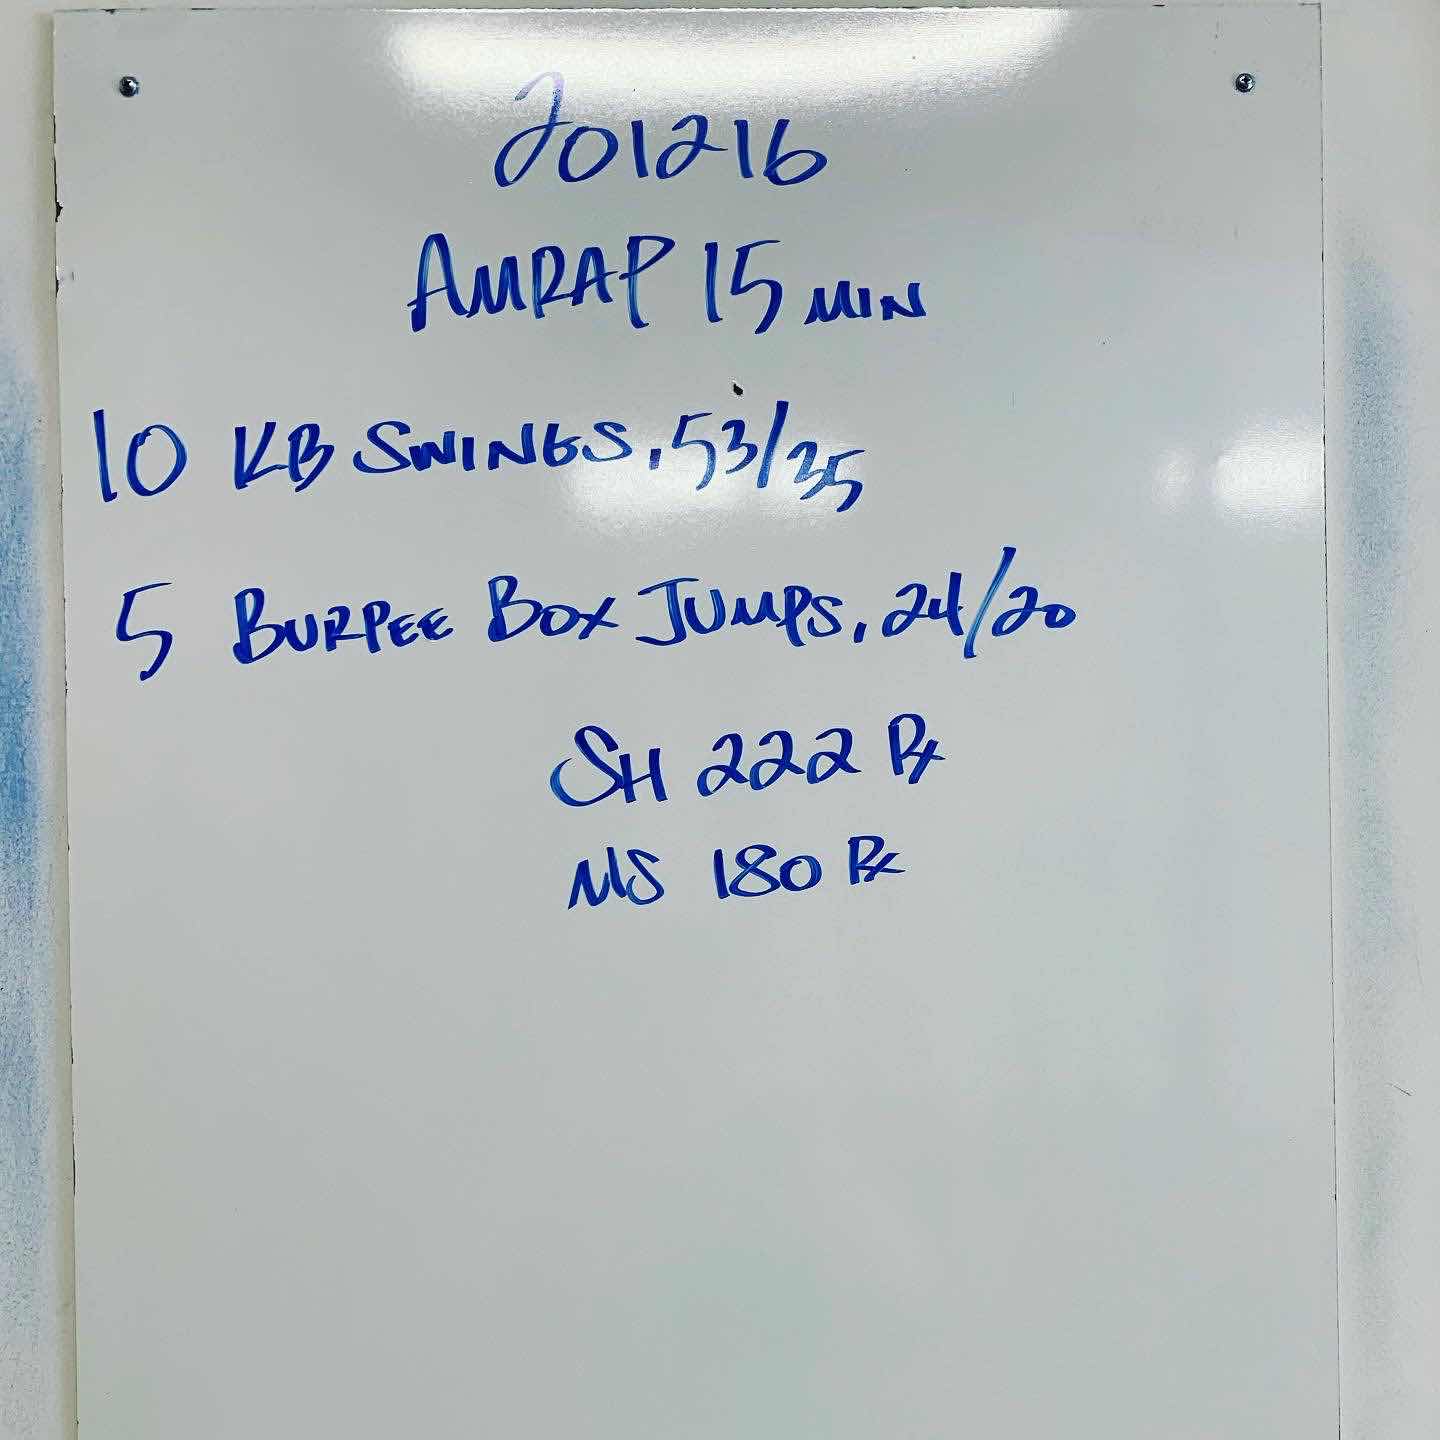 201216
AMRAP 15 MIN
10 KB SWINGS, 53/35
5 BURPEE BOX JUMPS, 24/20
SH 222 Rx
MS 180 Rx